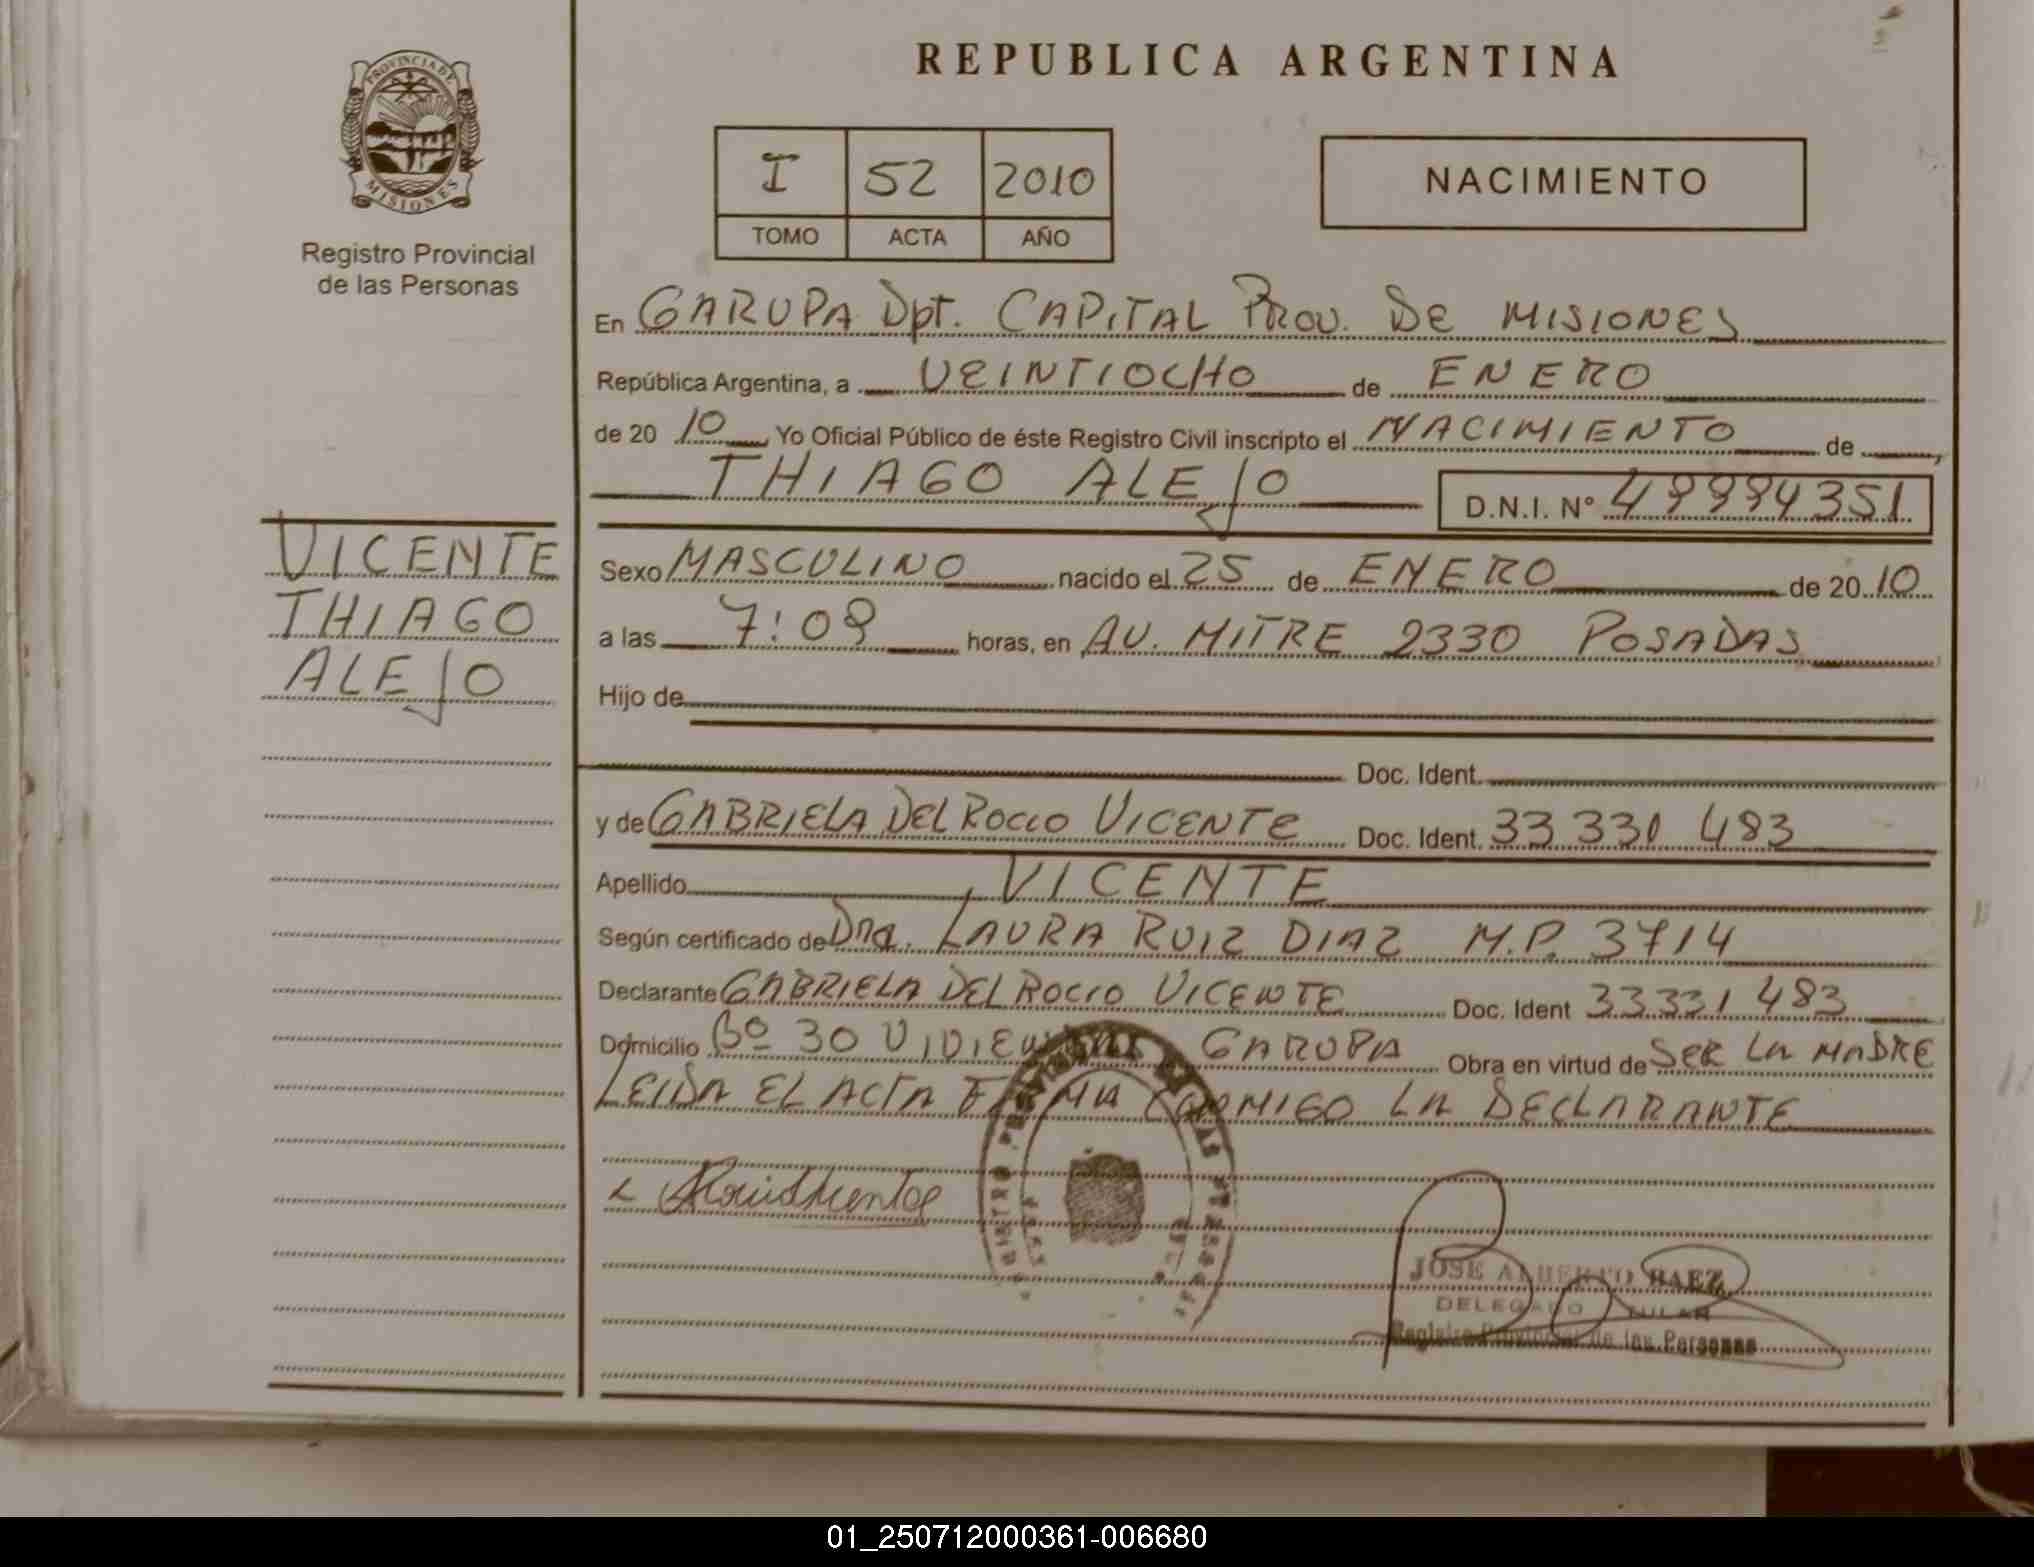 REPUBLICA ARGENTINA
PROVINCIA DE
MISIONES
Registro Provincial
de las Personas
I 52 2010
TOMO ACTA AÑO
NACIMIENTO
En GARUPA Dpt. CAPITAL PROV. De MISIONES
República Argentina, a VEINTIOCHO de ENERO
de 20 10 Yo Oficial Público de éste Registro Civil inscripto el NACIMIENTO de
THIAGO ALEJO D.N.I. Nº
VICENTE
THIAGO
ALEJO
Sexo MASCULINO nacido el 25 de ENERO de 20 10
a las horas, en AV. MITRE 2330 POSADAS
Hijo de
Doc. Ident.
y de GABRIELA DEL ROCIO VICENTE Doc. Ident. 33 331 483
Apellido VICENTE
Según certificado de Dra. LAURA RUIZ DIAZ M.P. 3714
Declarante GABRIELA DEL ROCIO VICENTE Doc. Ident 33331 483
Domicilio Bº 30 VIVIENDAS GARUPA Obra en virtud de SER LA MADRE
LEIDA EL ACTA FIRMA CONMIGO LA DECLARANTE
JOSE ALBERTO BAEZ
DELEGADO TITULAR
Registro Provincial de las Personas
01_250712000361-006680